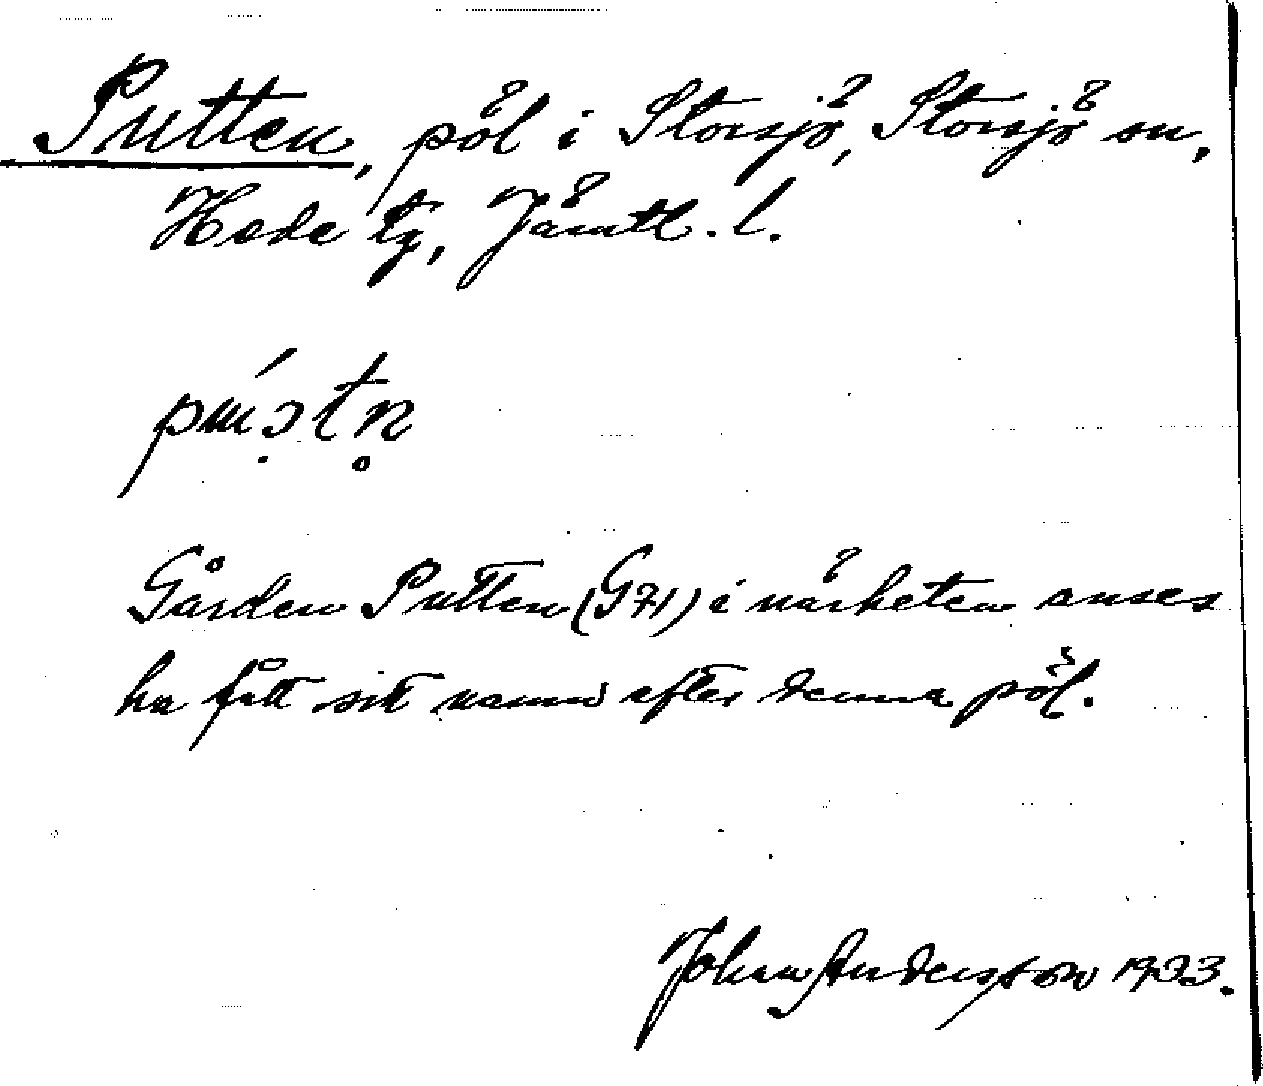 Putten, pöl i Storsjö, Storsjö sn,
Hede tg, Jämtl. l.
Gården Putten (G71) i närheten anses
ha fått sitt namn efter denna pöl.
Johan Andersson 1933.